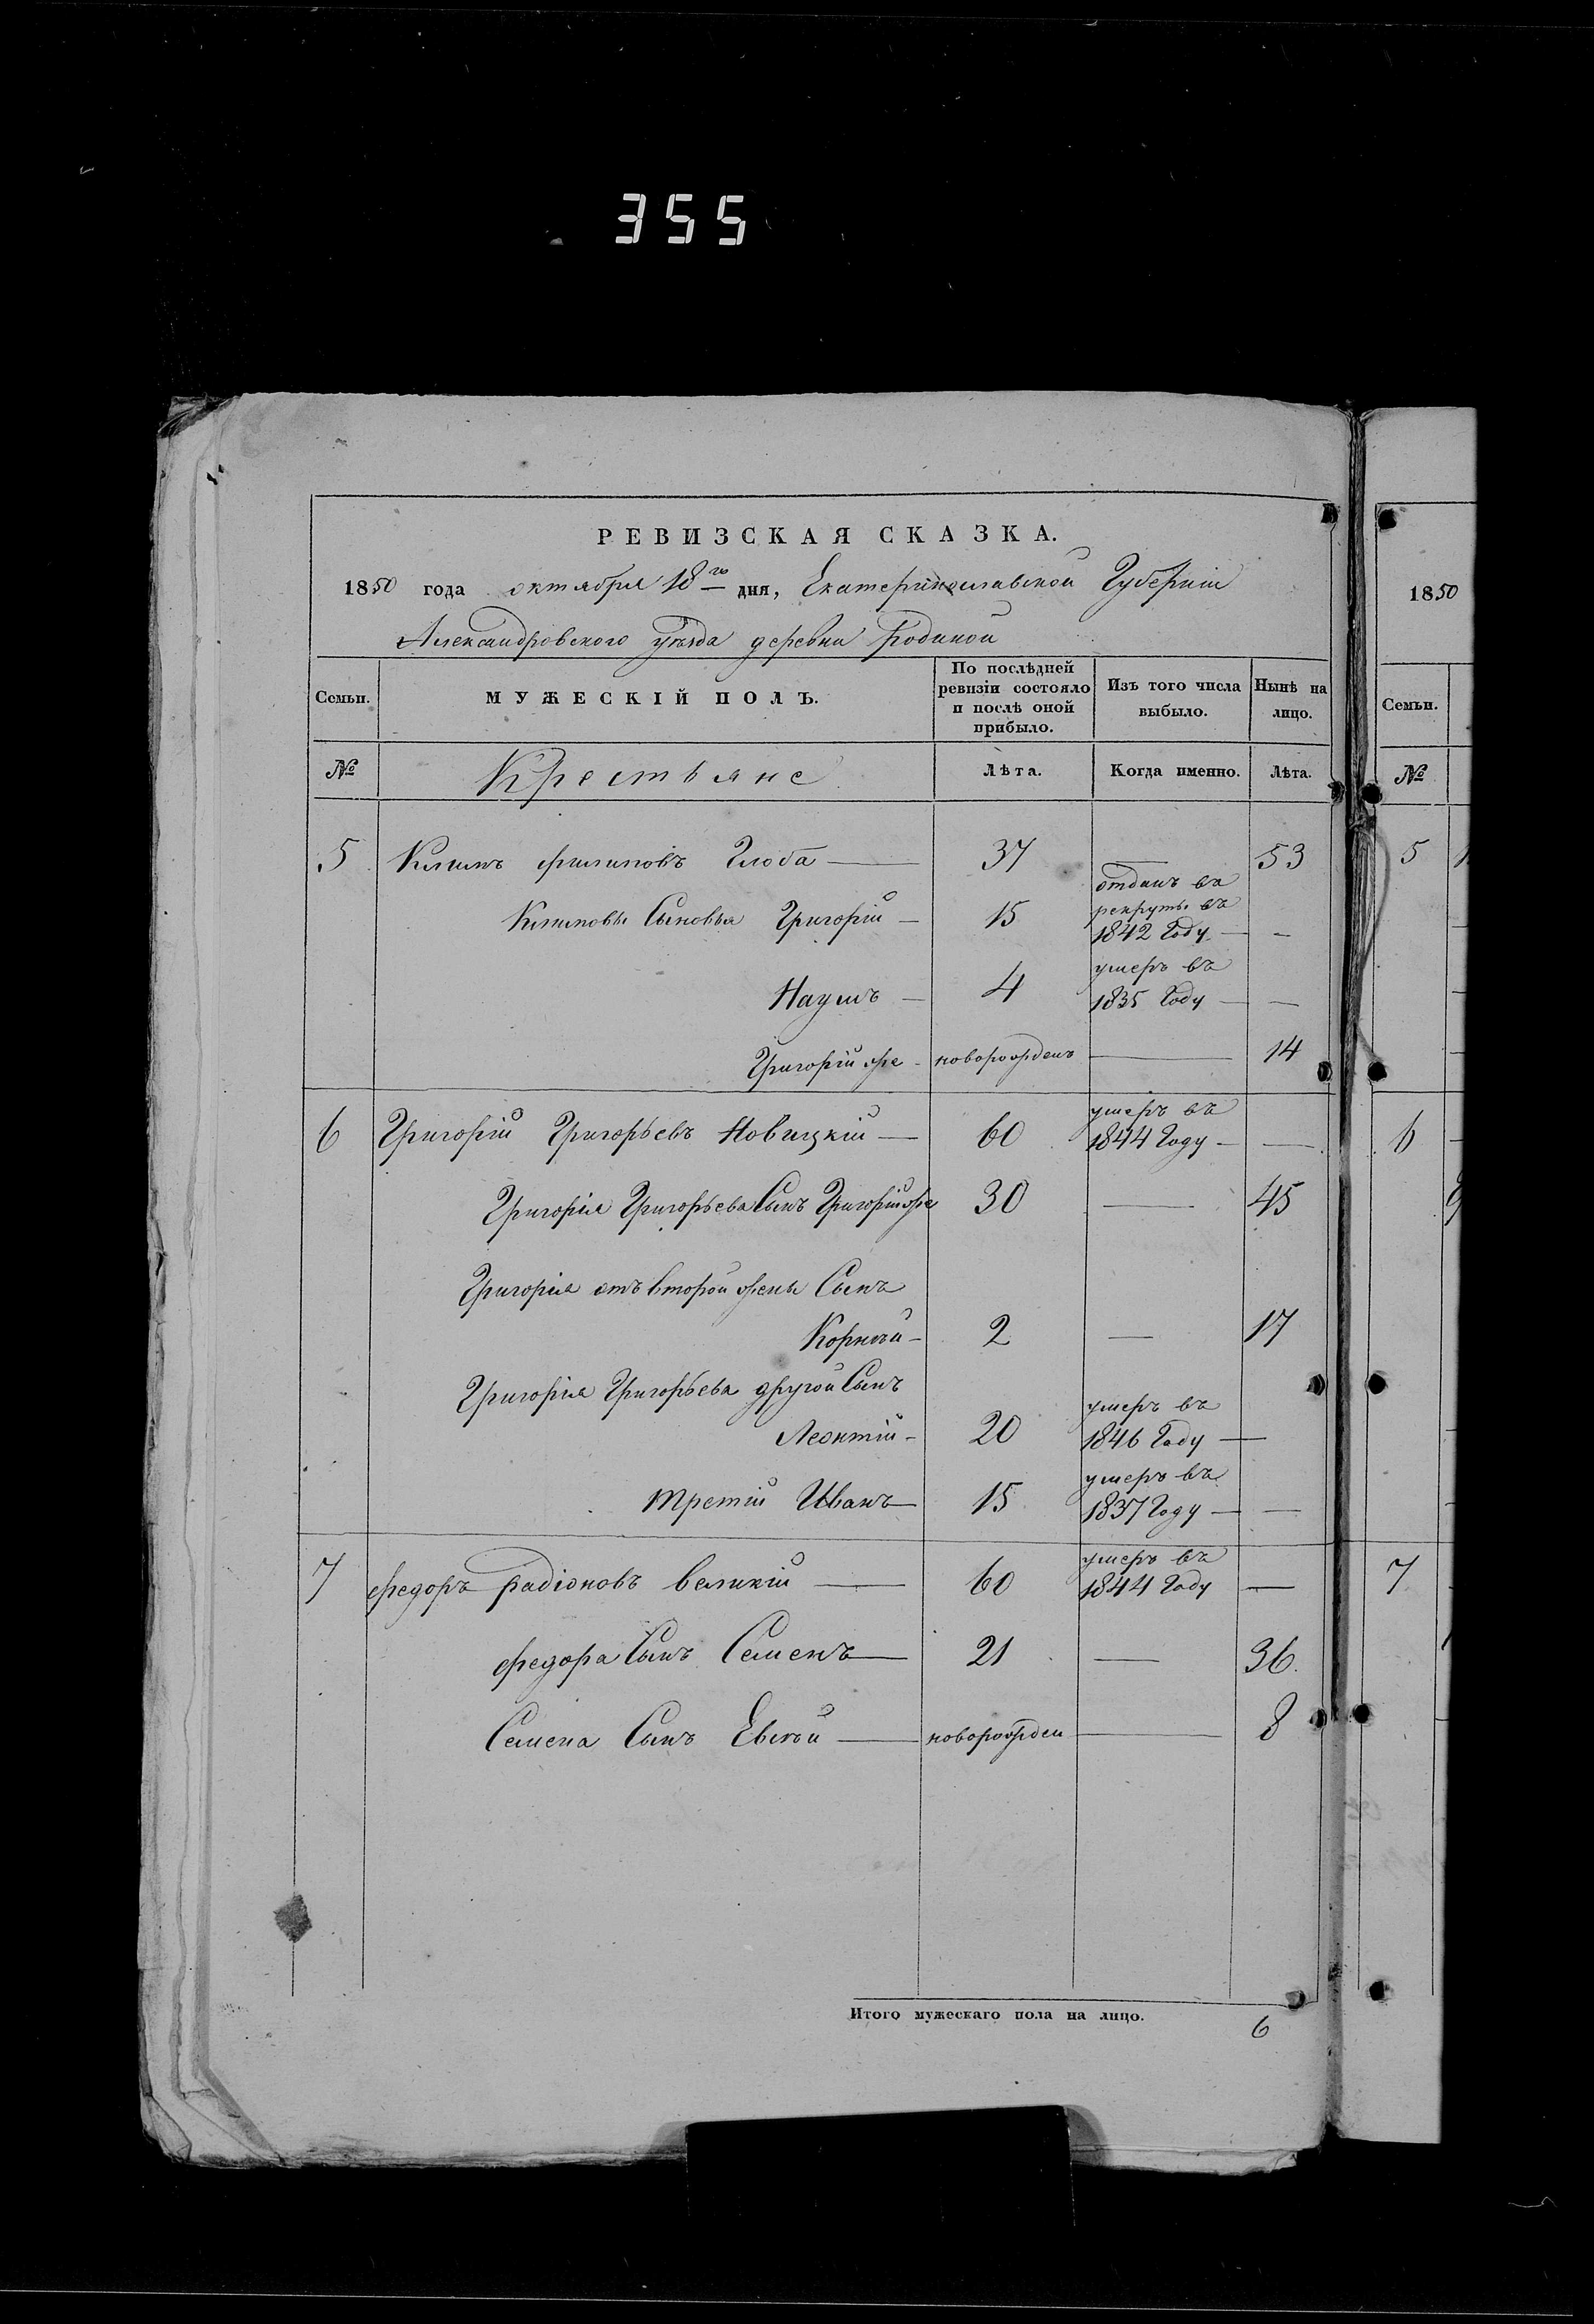 355
РЕВИЗСКАЯ СКАЗКА.
1850 года октября 18го дня, Екатеринославской Губерніи
Александровского уѣзда деревни Родиной
Семьи. МУЖЕСКІЙ ПОЛЪ. По послѣдней ревизіи состояло и послѣ оной прибыло. Изъ того числа выбыло. Нынѣ на лицо.
№ Крестьяне Лѣта. Когда именно. Лѣта.
5 Климъ филиповъ Глоба — 37 — 53
Климовы Сыновья Григорій — 15 отданъ въ рекруты въ 1842 Году — —
Наумъ — 4 умеръ въ 1835 Году — —
Григорій же - новорожденъ — 14
6 Григорій Григорьевъ Новицкій — 60 умеръ въ 1844 Году — —
Григорія Григорьева Сынъ Григорій же 30 — 45
Григорія отъ второй жены Сынъ
Корнѣй - 2 — 17
Григорія Григорьева другой Сынъ
Леонтій - 20 умеръ въ 1846 Году —
третій Иванъ — 15 умеръ въ 1837 Году — —
7 федоръ радіоновъ великій — 60 умеръ въ 1844 Году —
федора Сынъ Семенъ — 21 — 36.
Семена Сынъ Евсѣй — новорожден — 8
Итого мужескаго пола на лицо. 6
1850
Семьи.
№
5
6
7